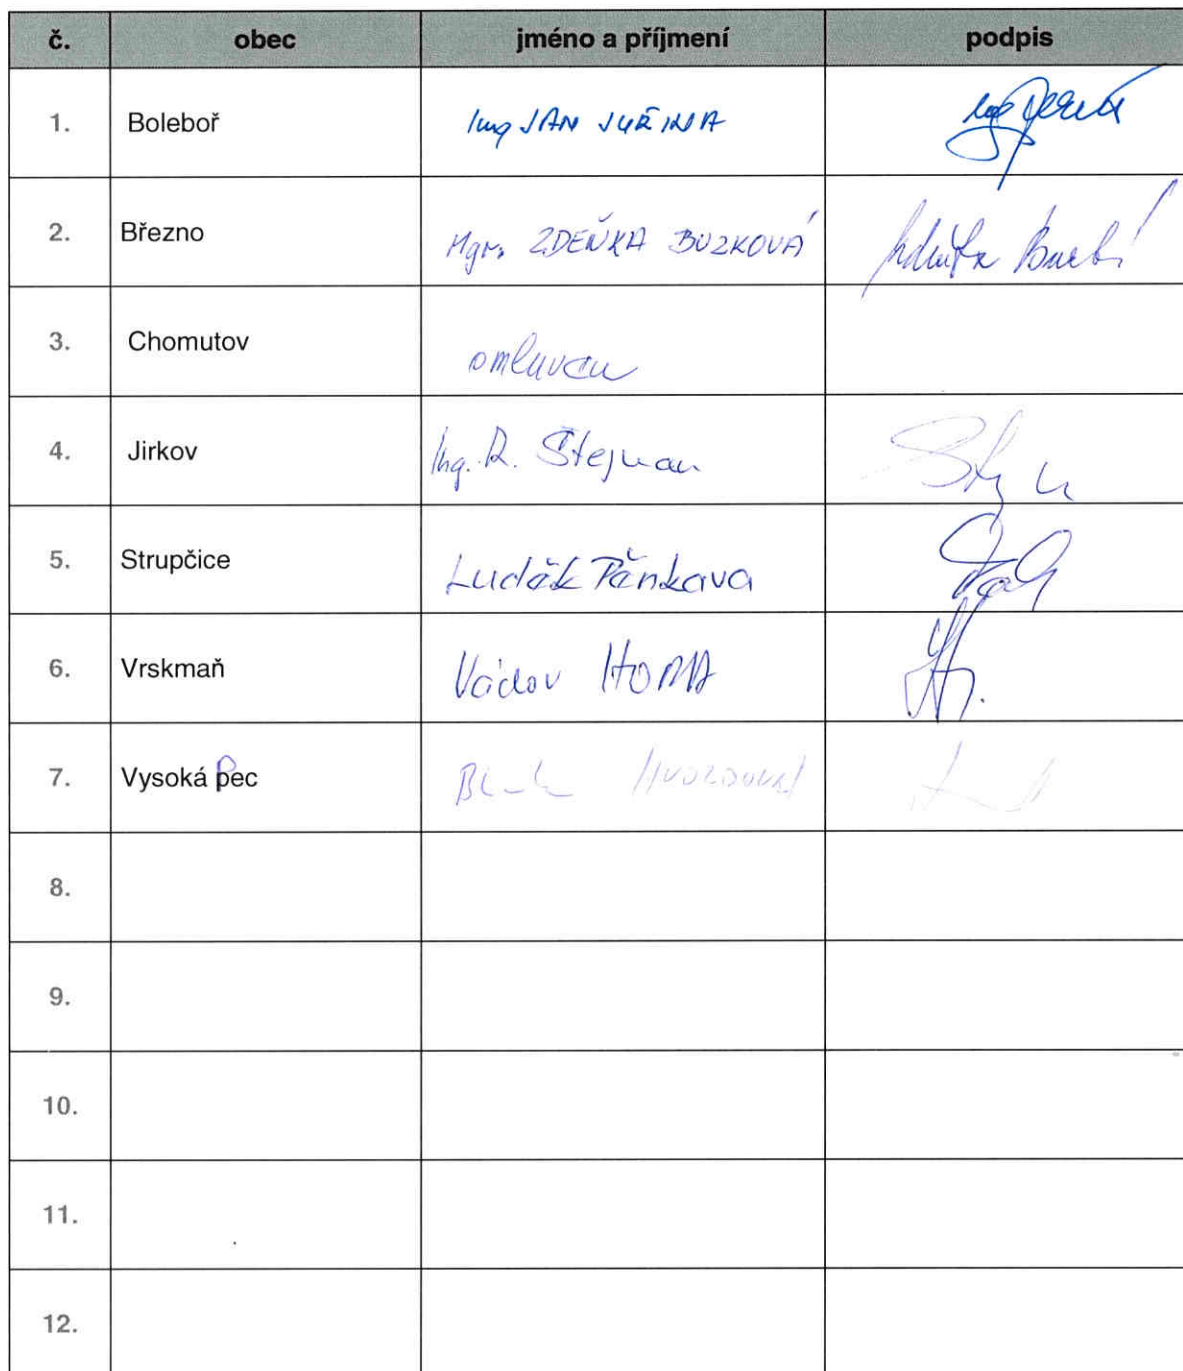 č. obec jméno a příjmení podpis
1. Boleboř Ing JAN JUŘINA
2. Březno Mgr. ZDEŇKA BUZKOVÁ
3. Chomutov omluven
4. Jirkov Ing. R. Štejnar
5. Strupčice Luděk Pěnkava
6. Vrskmaň Václav HOMA
7. Vysoká Pec
8.
9.
10.
11.
12.